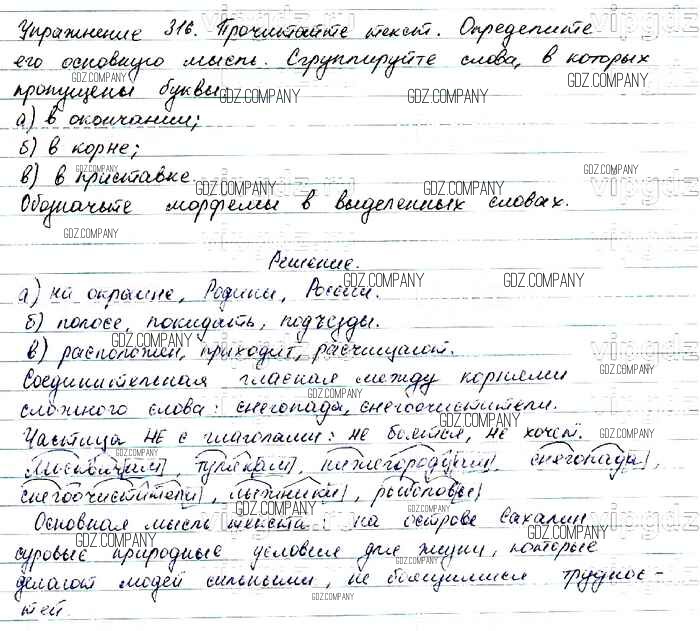 Упражнение 316. Прочитайте текст. Определите
его основную мысль. Сгруппируйте слова, в которых
пропущены буквы
а) в окончании;
б) в корне;
в) в приставке.
Обозначьте морфемы в выделенных словах.
Решение.
а) на окраине, Родины, России.
б) полосе, покидать, подъезды.
в) расположен, приходит, расчищают.
Соединительная гласная между корнями
сложного слова: снегопада, снегоочистители.
Частица НЕ с глаголами: не боится, не хочет.
москвичам, тулякам, нижегородцам, снегопада,
снегоочистители, лыжники, рыболовы
Основная мысль текста: на острове Сахалин
суровые природные условия для жизни, которые
делают людей сильными, не боящимися труднос-
тей.